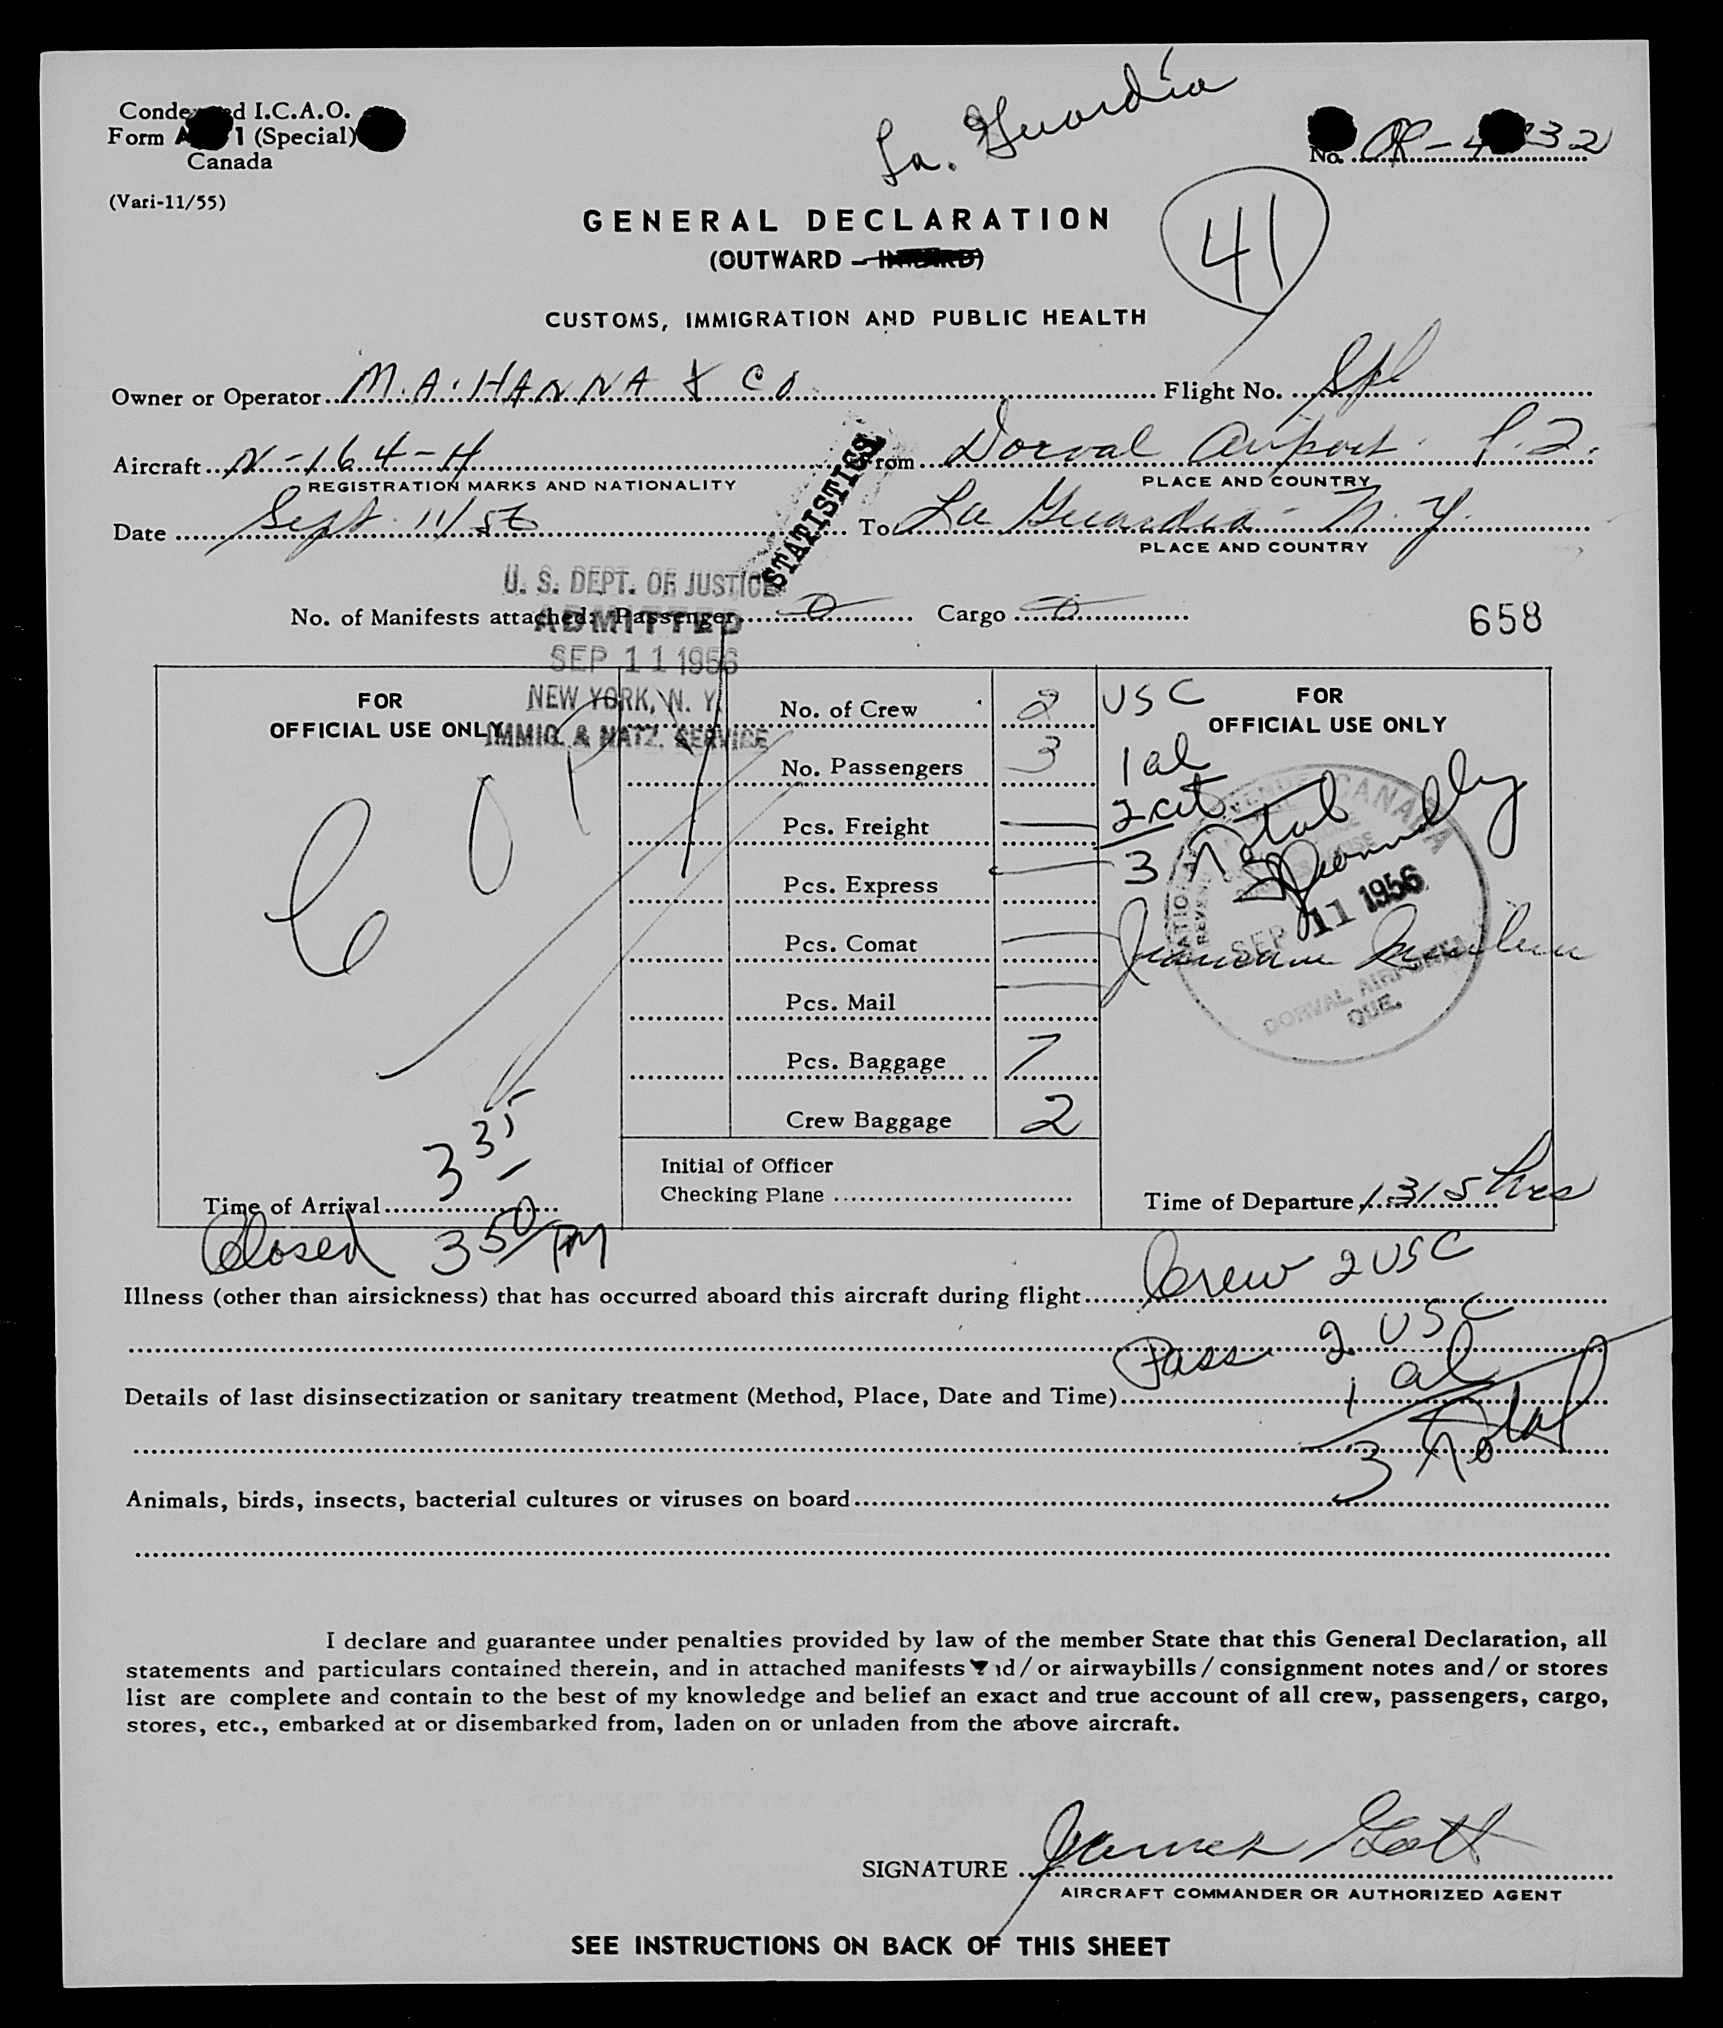 La. Guardia
Condensed I.C.A.O.
Form 1 (Special)
Canada
(Vari-11/55)
No.
41
GENERAL DECLARATION
(OUTWARD – INWARD)
CUSTOMS, IMMIGRATION AND PUBLIC HEALTH
Owner or Operator M.A. HANNA & CO. Flight No. Spl
Aircraft N-164-H From Dorval Airport. P.Q.
REGISTRATION MARKS AND NATIONALITY PLACE AND COUNTRY
Date Sept. 11/56 To La Guardia - N.Y.
PLACE AND COUNTRY
STATISTICS
U. S. DEPT. OF JUSTICE
No. of Manifests attached: Passenger 0 Cargo 0 658
ADMITTED
SEP 11 1956
NEW YORK, N. Y.
IMMIG. & NATZ. SERVICE
FOR
OFFICIAL USE ONLY
COPY
No. of Crew 2
No. Passengers 3
Pcs. Freight —
Pcs. Express —
Pcs. Comat —
Pcs. Mail —
Pcs. Baggage 7
Crew Baggage 2
Initial of Officer
Checking Plane
USC
FOR
OFFICIAL USE ONLY
1 al
2 cit
3 Total
CANADA
SEP 11 1956
DORVAL AIRPORT
QUE.
335
Time of Arrival
Time of Departure 1315 hrs
Closed 350 PM
Crew 2 USC
Illness (other than airsickness) that has occurred aboard this aircraft during flight
Pass 2 USC
1 al
Details of last disinsectization or sanitary treatment (Method, Place, Date and Time)
3 Total
Animals, birds, insects, bacterial cultures or viruses on board
I declare and guarantee under penalties provided by law of the member State that this General Declaration, all
statements and particulars contained therein, and in attached manifests and/or airwaybills/consignment notes and/or stores
list are complete and contain to the best of my knowledge and belief an exact and true account of all crew, passengers, cargo,
stores, etc., embarked at or disembarked from, laden on or unladen from the above aircraft.
SIGNATURE James Gott
AIRCRAFT COMMANDER OR AUTHORIZED AGENT
SEE INSTRUCTIONS ON BACK OF THIS SHEET